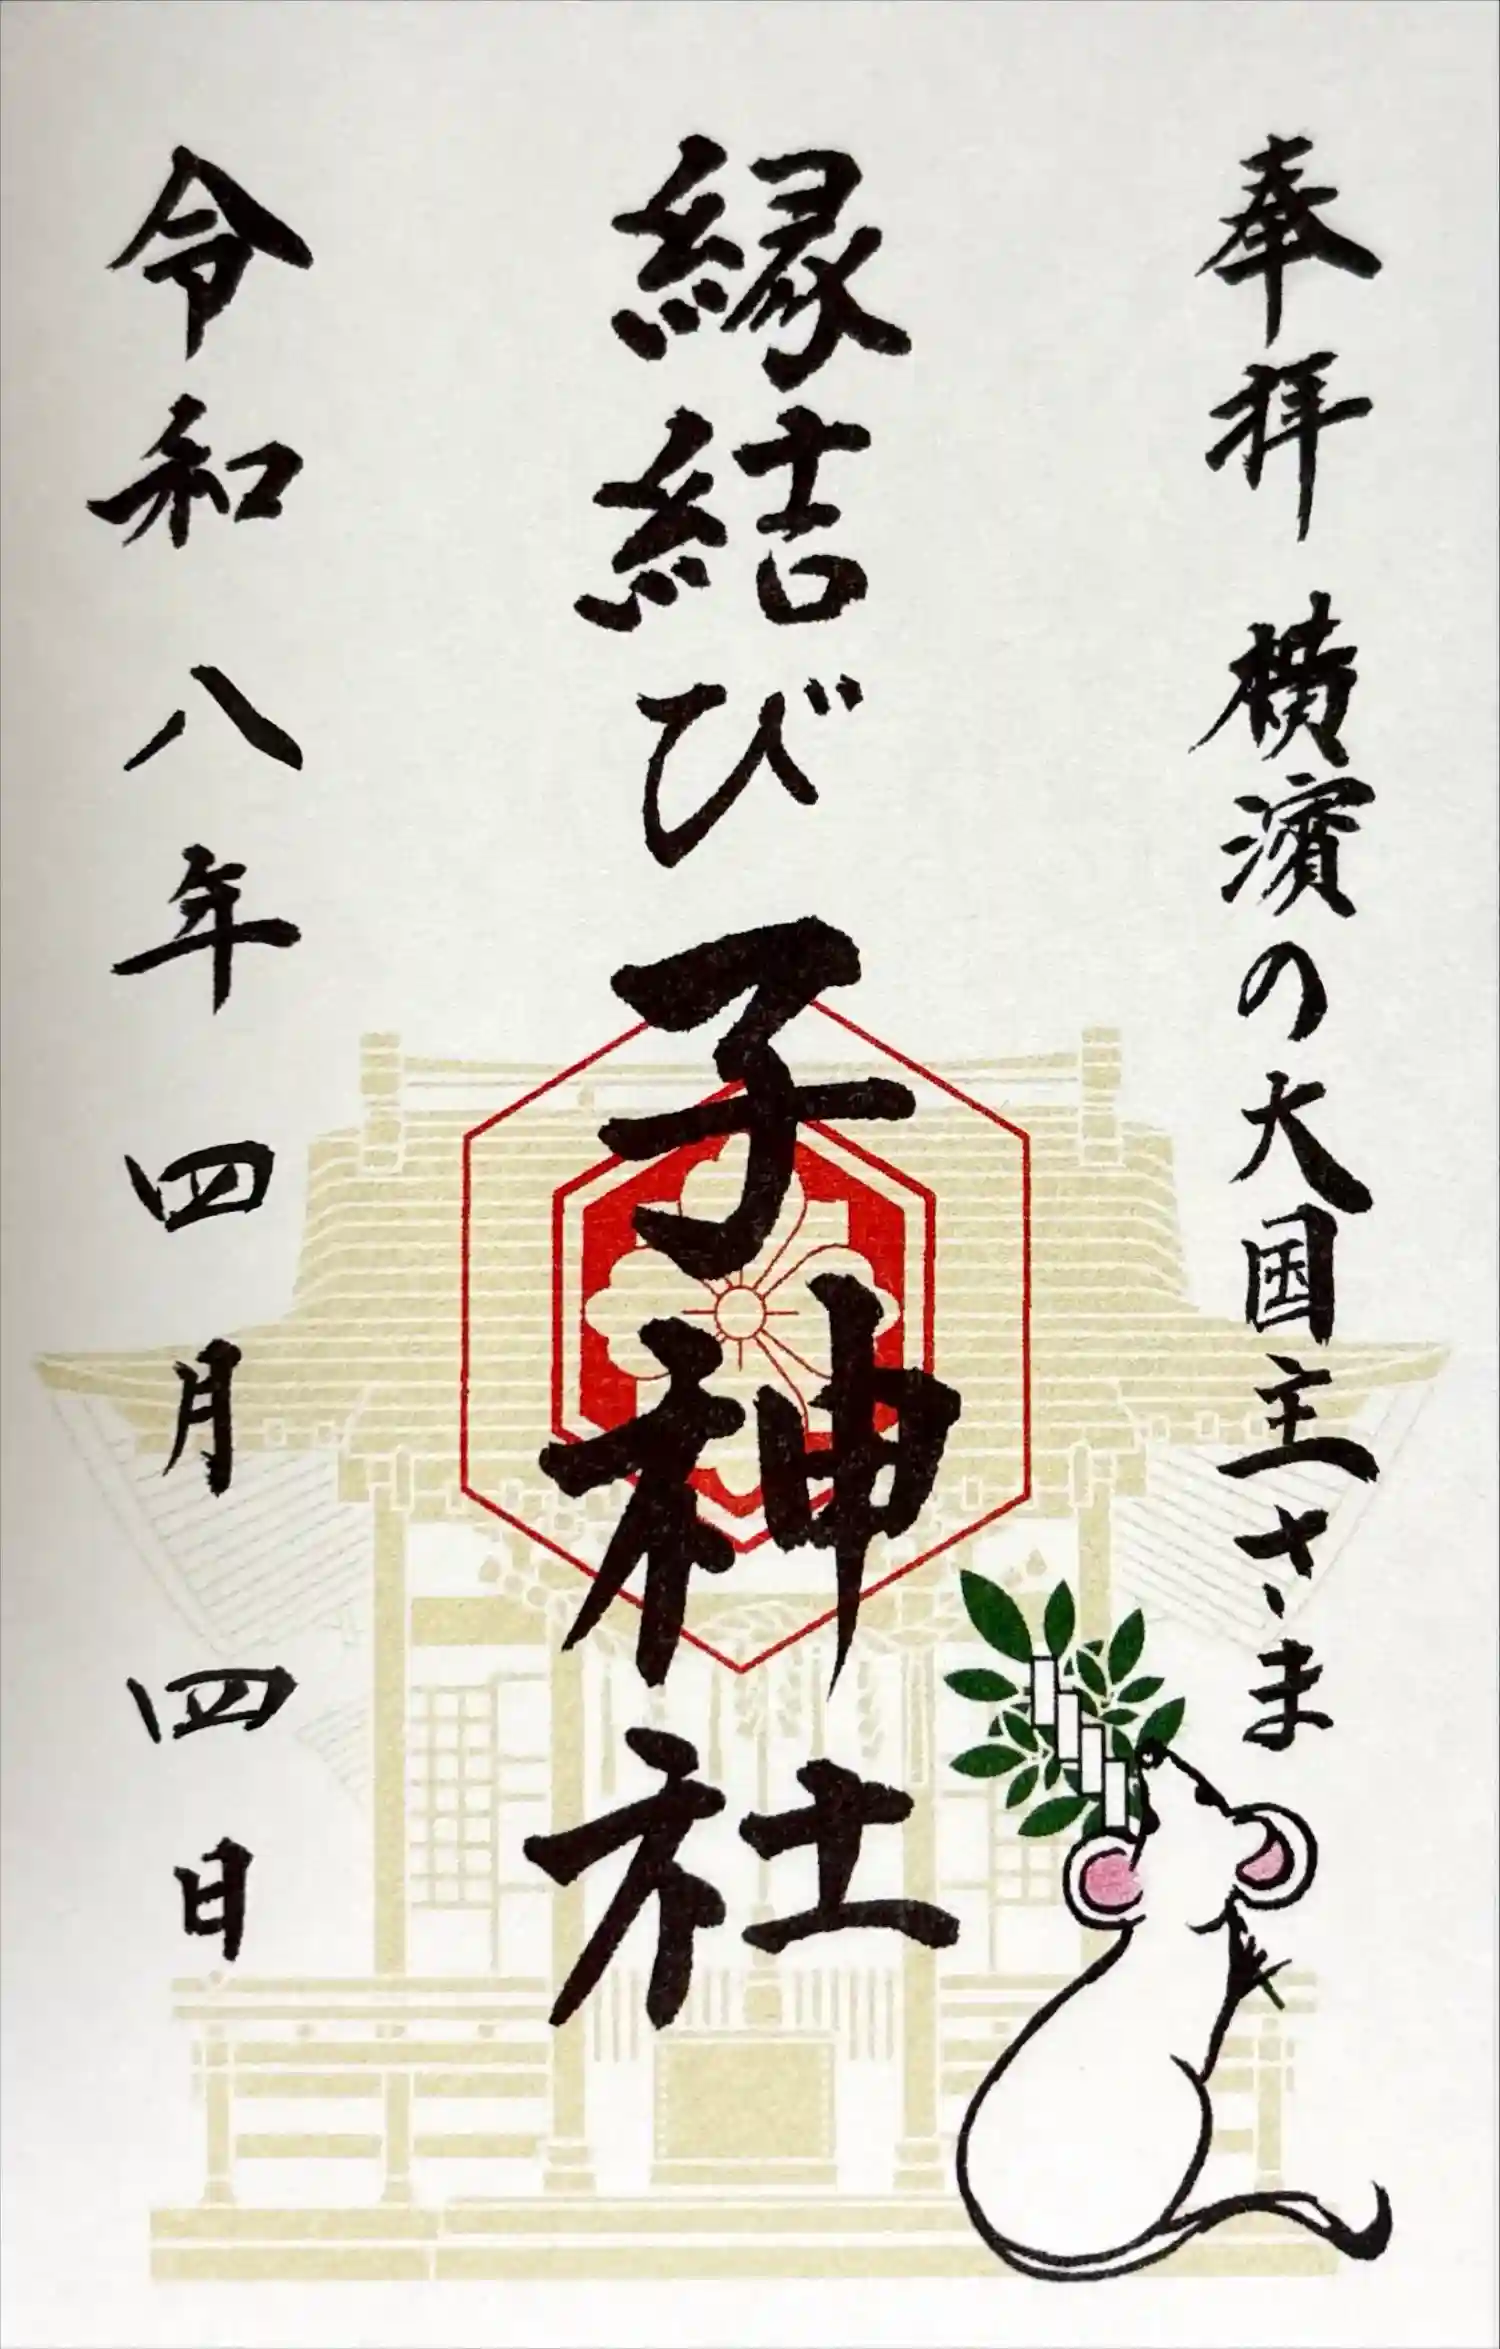 奉拝 横濱の大国主さま
縁結び 子神社
令和八年四月四日